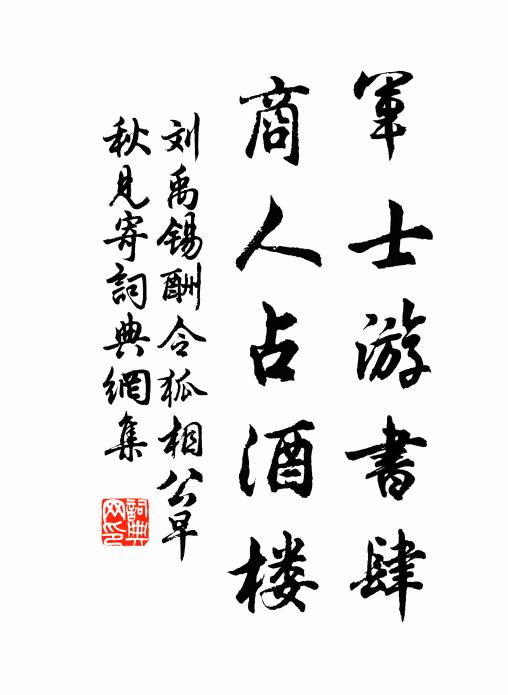 軍士游書肆
商人占酒楼
刘禹锡酬令狐相公早
秋見寄詞典網集
詞典
网印